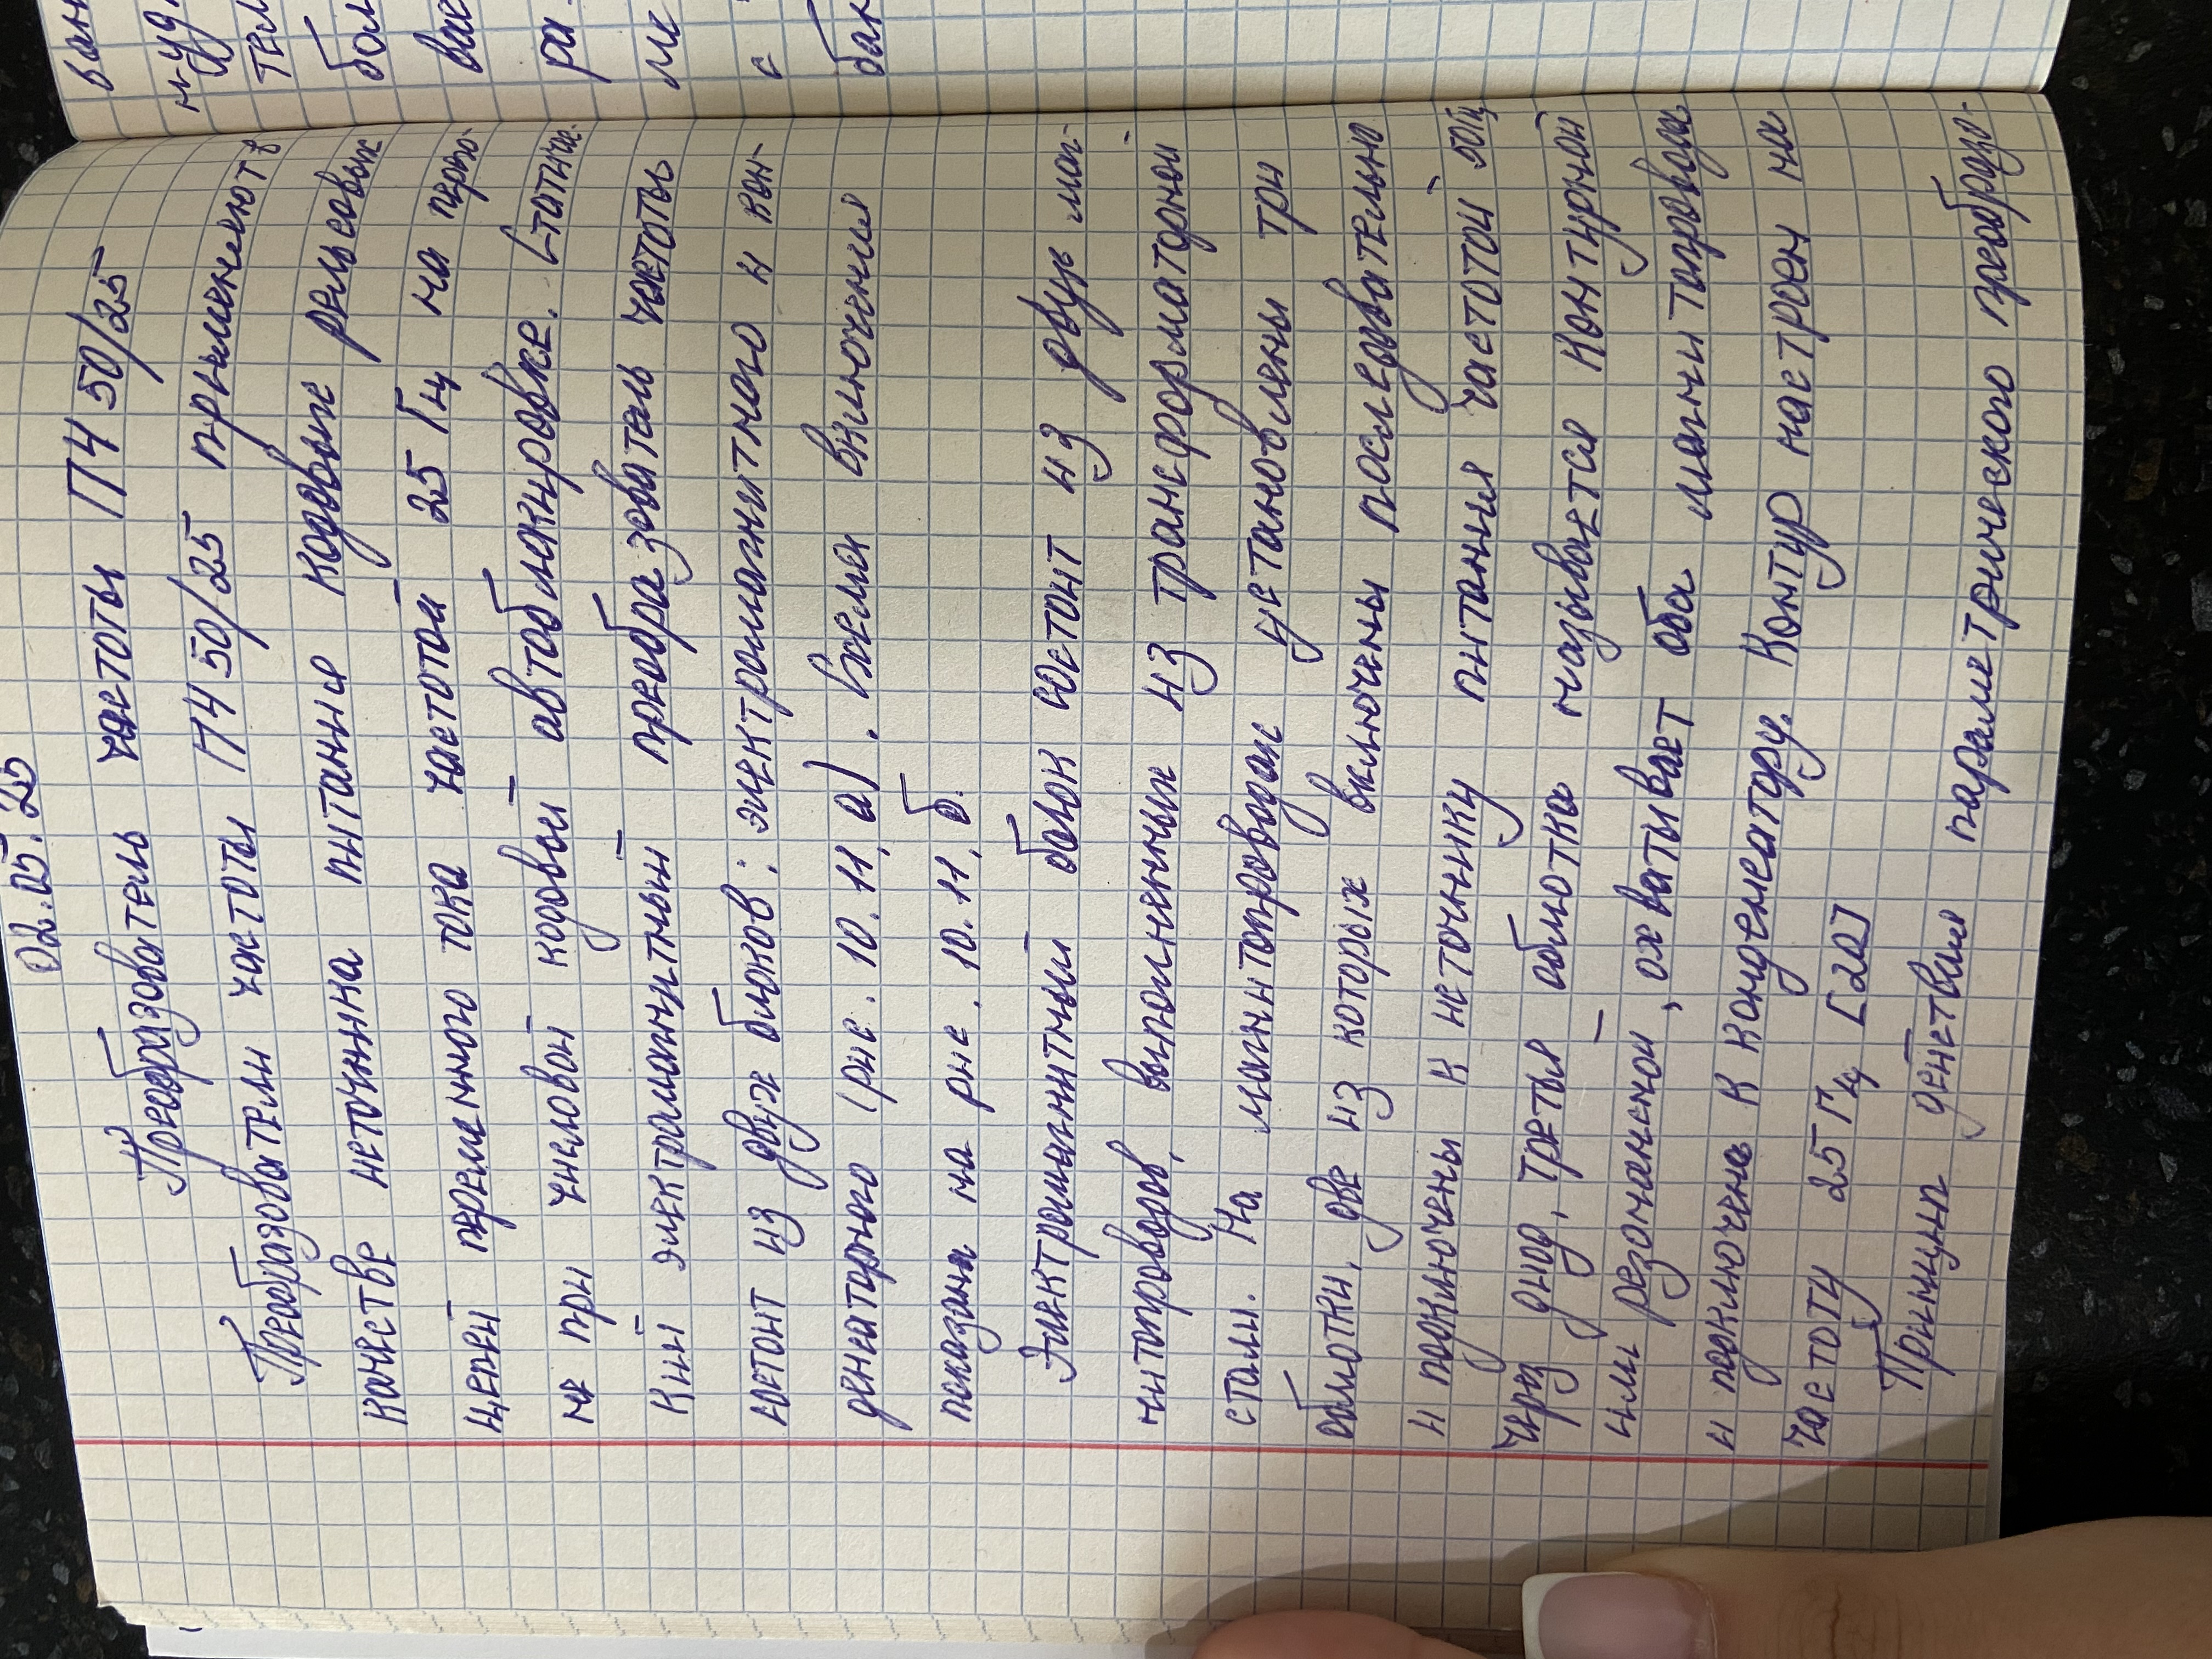 02.05.25
Преобразователь частоты ПЧ 50/25
Преобразователи частоты ПЧ 50/25 применяют в
качестве источника питания кодовых рельсовых
цепей переменного тока частотой 25 Гц на перего-
не при числовой кодовой автоблокировке. Статичес-
кий электромагнитный преобразователь частоты
состоит из двух блоков: электромагнитного и кон-
денсаторного (рис. 10.11, а). Схема включения
показана на рис. 10.11, б.
Электромагнитный блок состоит из двух маг-
нитопроводов, выполненных из трансформаторной
стали. На магнитопроводах установлены три
обмотки, две из которых включены последовательно
и подключены к источнику питания частотой 50Гц
через диод, третья обмотка называется контурной
или резонансной, охватывает оба магнитопровода
и подключена к конденсатору. Контур настроен на
частоту 25 Гц [20]
Принцип действия параметрического преобразо-
ван
нуд
тел
бол
вае
ра
ле
с
бак